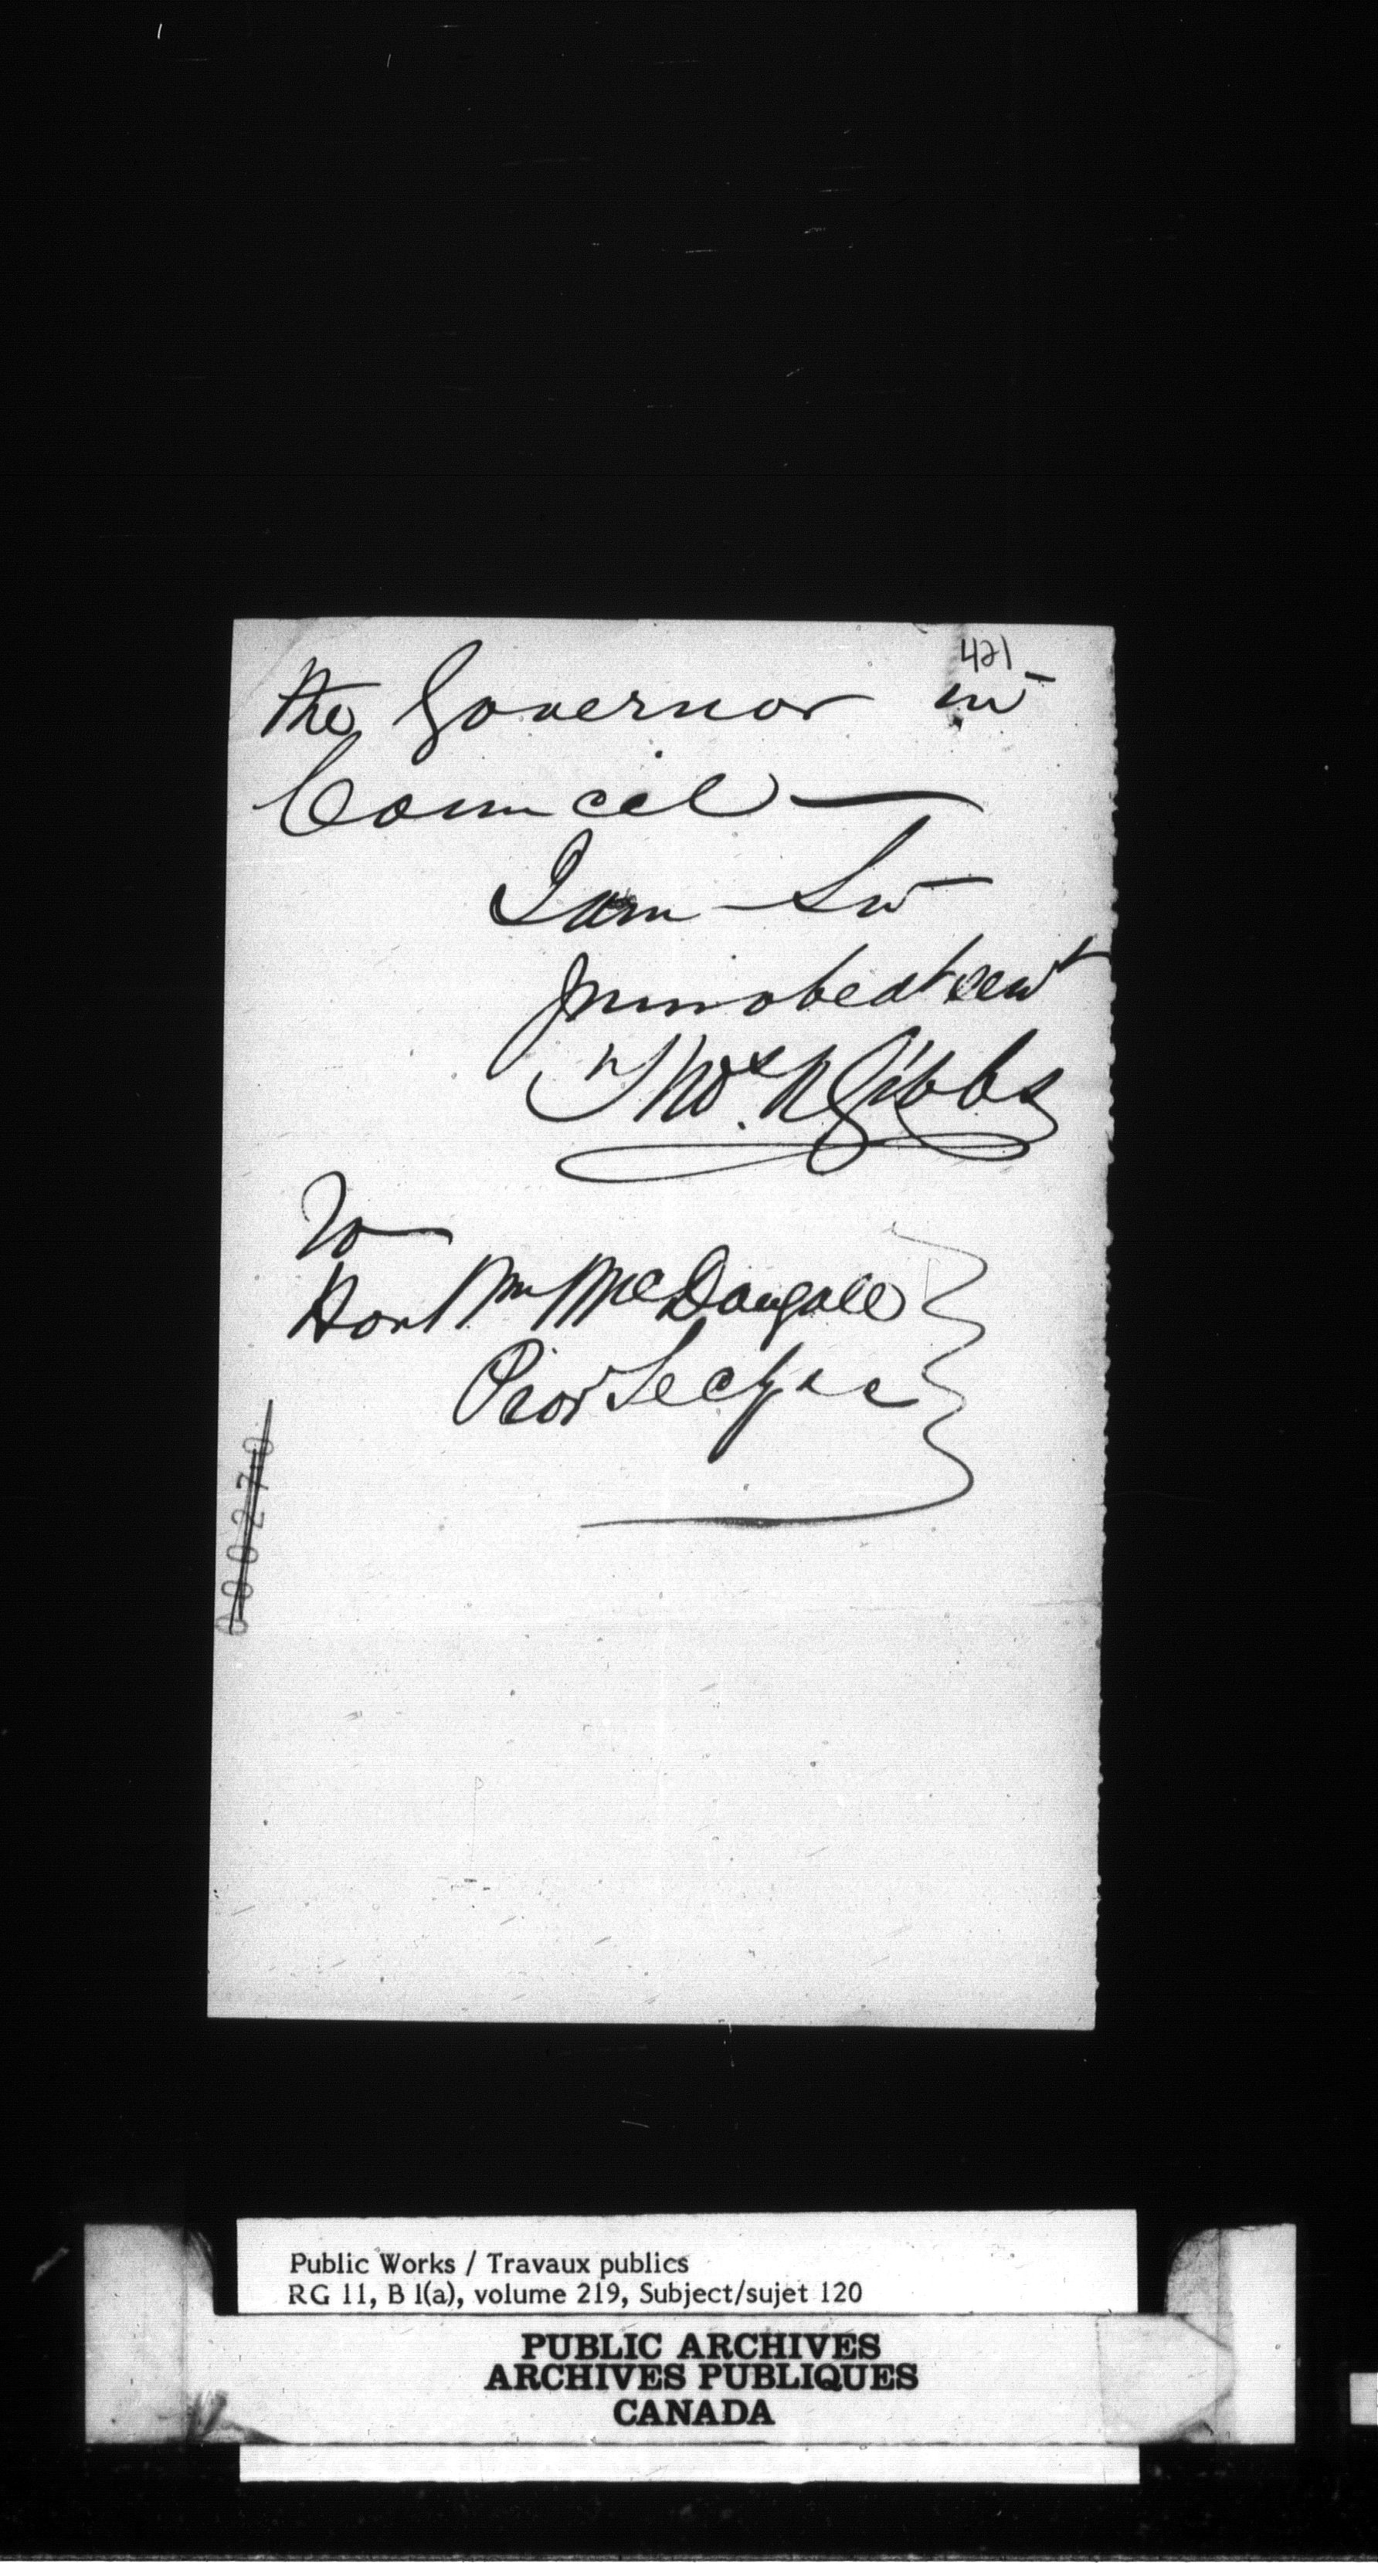 421
the Governor in
Council —
I am Sir
Your obedt servt
Thos. N Gibbs
To
Hon Wm McDougall
Prov Secy &c &c
000270
Public Works / Travaux publics
RG 11, B 1(a), volume 219, Subject/sujet 120
PUBLIC ARCHIVES
ARCHIVES PUBLIQUES
CANADA